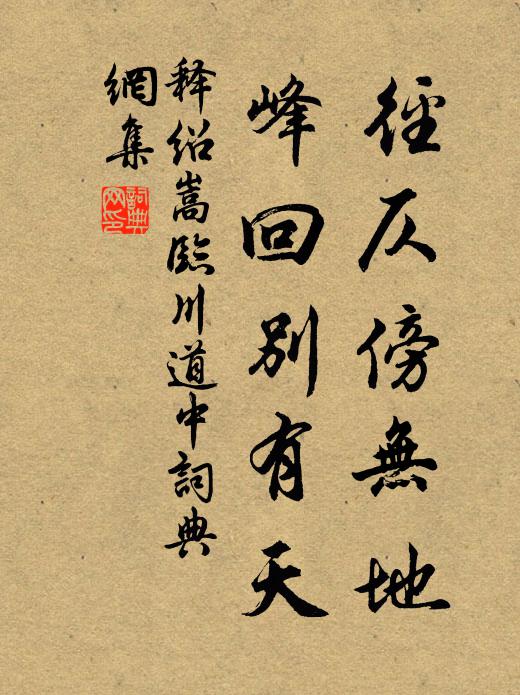 徑仄傍無地
峰回別有天
释绍嵩臨川道中詞典
網集
詞典
网印